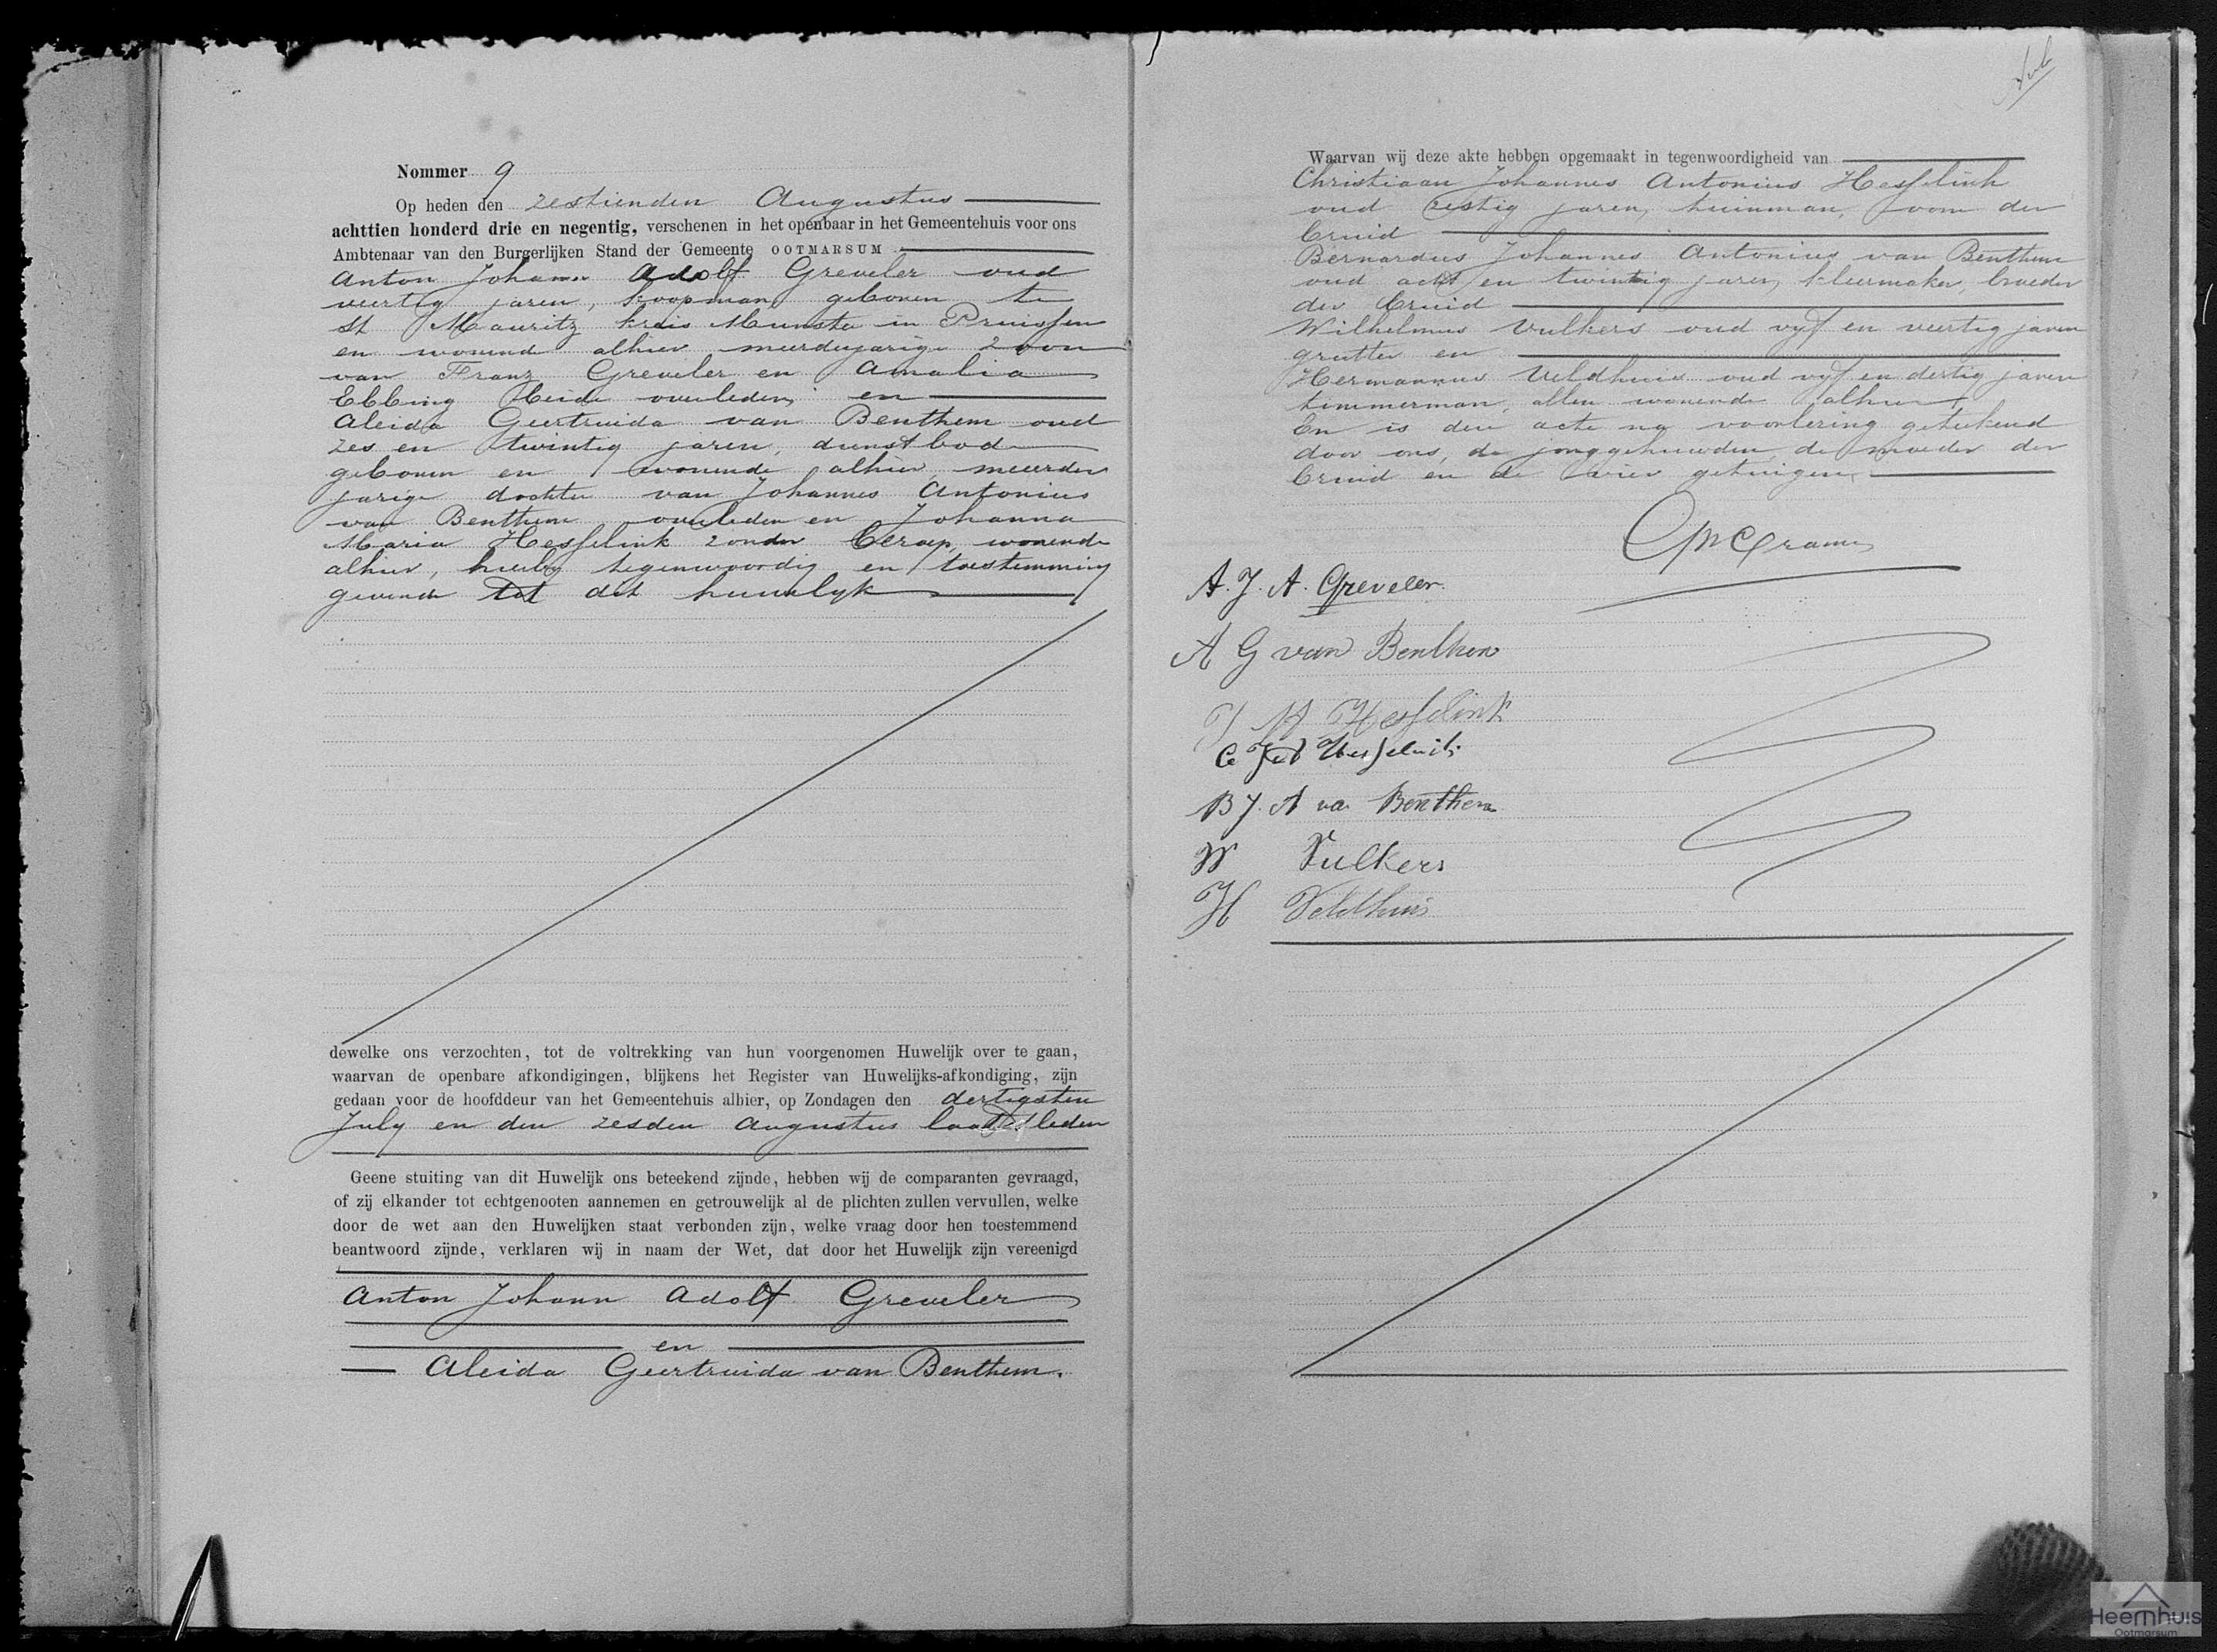 Nommer 9
Op heden den zestienden Augustus
achttien honderd drie en negentig, verschenen in het openbaar in het Gemeentehuis voor ons
Ambtenaar van den Burgerlijken Stand der Gemeente OOTMARSUM
Anton Johann Adolf Greveler oud
veertig jaren, koopman geboren te
St Mauritz kreis Munster in Pruissen
en wonend alhier meerderjarige zoon
van Franz Greveler en Amalia
Ebbing beide overleden, en
Aleida Geertruida van Benthem oud
zes en twintig jaren, dienstbode
geboren en wonende alhier meerder
jarige dochter van Johannes Antonius
van Benthem overleden en Johanna
Maria Hesselink zonder beroep, wonende
alhier, hierby tegenwoordig en toestemming
gevende tot dit huwelyk
dewelke ons verzochten, tot de voltrekking van hun voorgenomen Huwelijk over te gaan,
waarvan de openbare afkondigingen, blijkens het Register van Huwelijks-afkondiging, zijn
gedaan voor de hoofddeur van het Gemeentehuis alhier, op Zondagen den dertigsten
July en den zesden Augustus laatstleden
Geene stuiting van dit Huwelijk ons beteekend zijnde, hebben wij de comparanten gevraagd,
of zij elkander tot echtgenooten aannemen en getrouwelijk al de plichten zullen vervullen, welke
door de wet aan den Huwelijken staat verbonden zijn, welke vraag door hen toestemmend
beantwoord zijnde, verklaren wij in naam der Wet, dat door het Huwelijk zijn vereenigd
Anton Johann Adolf Greveler
en
Aleida Geertruida van Benthem.
Waarvan wij deze akte hebben opgemaakt in tegenwoordigheid van
Christiaan Johannes Antonius Hesselink
oud zestig jaren, tuinman, oom der
bruid
Bernardus Johannes Antonius van Benthem
oud acht en twintig jaren, kleermaker, broeder
der bruid
Wilhelmus Vulkers oud vyf en veertig jaren
grutter en
Hermannus Veldhuis oud vyf en dertig jaren
timmerman, allen wonende alhier,
En is deze acte na voorlezing geteekend
door ons, de jonggehuwden, de moeder der
bruid en de vier getuigen.
A. J. A. Greveler.
A G van Benthem
J M Hesselink
C J A Hesselink
B J. A van Benthem
W Vulkers
H Veldhuis
Heemhuis
Ootmarsum